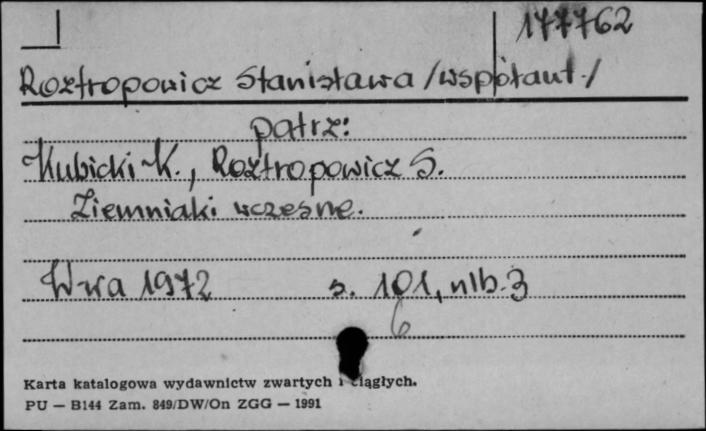 177762
Roztropowicz Stanisława /współaut./
patrz:
Kubicki K., Roztropowicz S.
Ziemniaki wczesne.
W-wa 1972 s. 101, nlb. 3
6
Karta katalogowa wydawnictw zwartych i ciągłych.
PU — B144 Zam. 849/DW/On ZGG — 1991